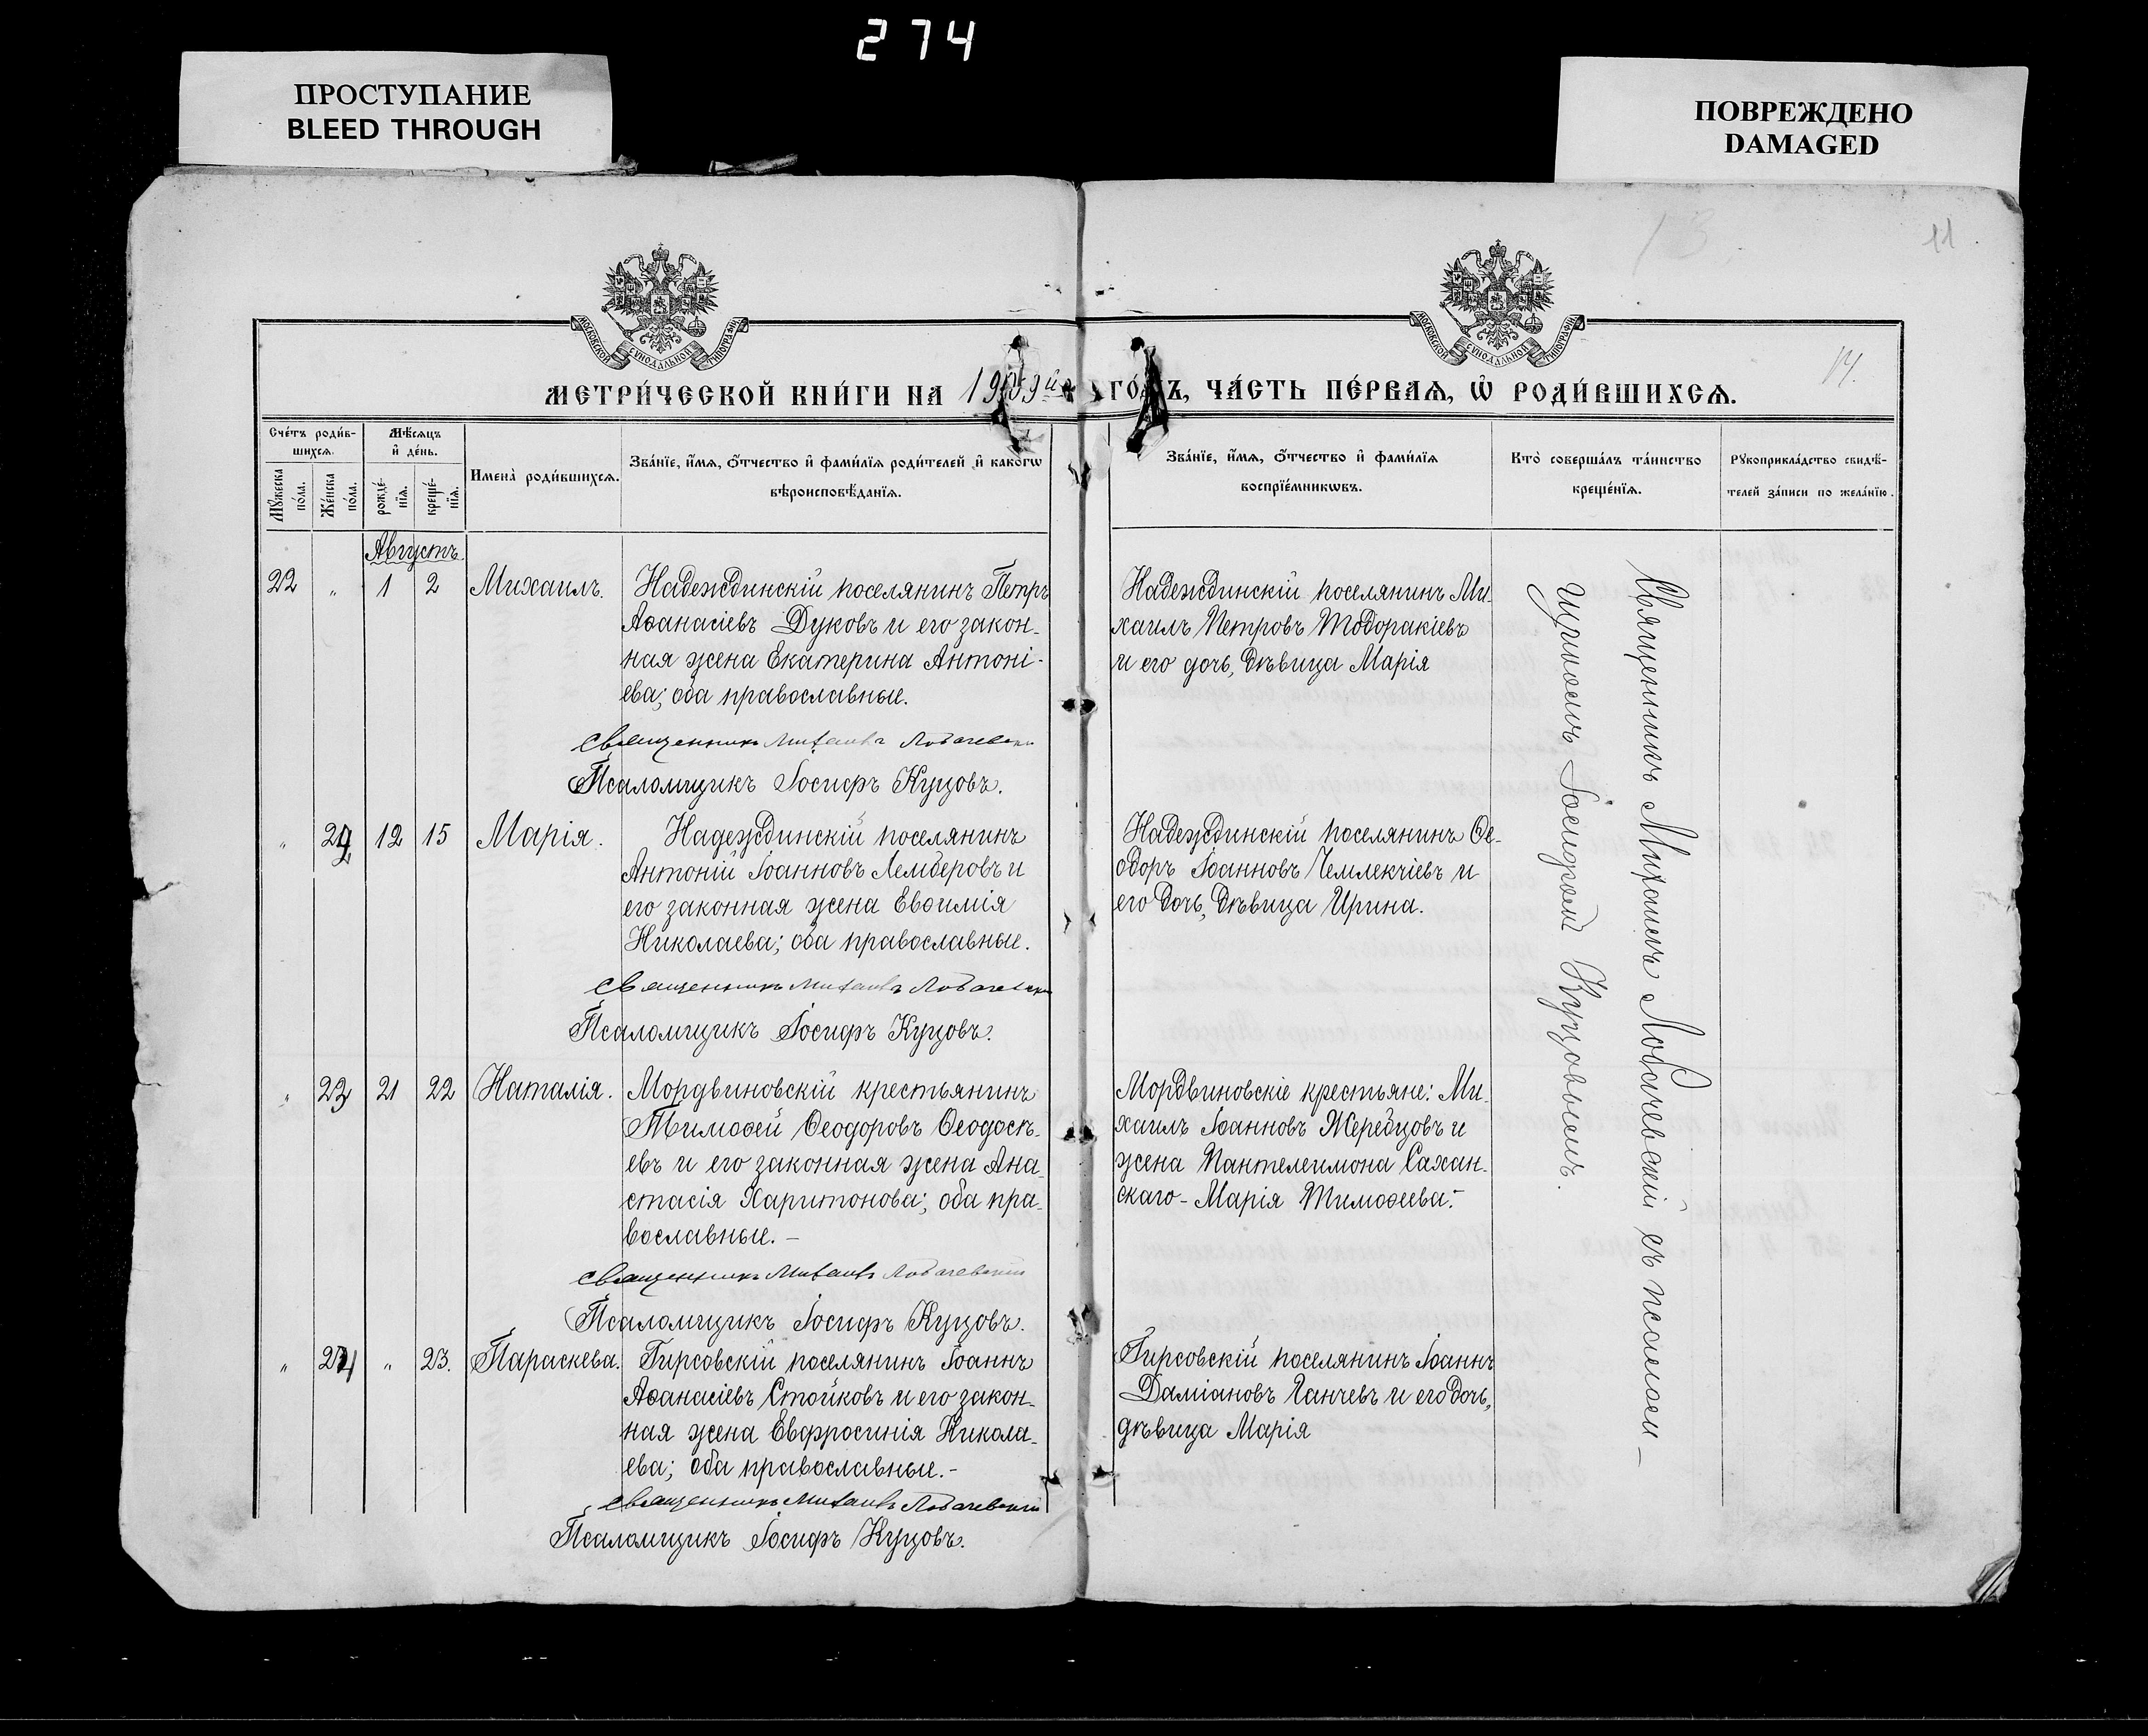 274
ПРОСТУПАНИЕ
BLEED THROUGH
ПОВРЕЖДЕНО
DAMAGED
11
14.
МОСКОВСКОЙ СѴНОДАЛЬНОЙ ТИПОГРАФІИ
МОСКОВСКОЙ СѴНОДАЛЬНОЙ ТИПОГРАФІИ
МЕТРИ́ЧЕСКОЙ КНИ́ГИ НА 1909й ГО́ДЪ, ЧА́СТЬ ПЕ́РВАЯ, Ѡ҆ РОДИ́ВШИХСЯ.
Сче́тъ роди́в-
шихся.
Мꙋ́жеска по́ла.
Же́нска по́ла.
Мѣ́сяцъ
и҆ де́нь.
рожде́-
нїя.
креще́-
нїя.
И҆мена̀ роди́вшихся.
Зва́нїе, и҆́мя, ѻ҆́тчество и҆ фами́лїя роди́телей, и҆ како́гѡ
вѣроисповѣ́данїя.
Зва́нїе, и҆́мя, ѻ҆́тчество и҆ фами́лїя
воспрїе́мникѡвъ.
Кто̀ соверша́лъ та́инство
креще́нїя.
Рꙋкоприкла́дство свидѣ́-
телей за́писи по жела́нїю.
Августъ.
22 " 1 2 Михаилъ.
Надеждинскій поселянинъ Петръ
Аѳанасіевъ Дуковъ и его закон-
ная жена Екатерина Антоні-
ева; оба православные.
Священникъ Михаилъ Лобачевский
Псаломщикъ Іосифъ Куцовъ.
Надеждинскій поселянинъ Ми-
хаилъ Петровъ Тодоракіевъ
и его дочь, дѣвица Марія
" 22 12 15 Марія.
Надеждинскій поселянинъ
Антоній Іоанновъ Лемберовъ и
его законная жена Евѳимія
Николаева; оба православные.
Священникъ Михаилъ Лобачевский
Псаломщикъ Іосифъ Куцовъ.
Надеждинскій поселянинъ Ѳе-
одоръ Іоанновъ Чемлекчіевъ и
его дочь, дѣвица Ирина.
" 23 21 22 Наталія.
Мордвиновскій крестьянинъ
Тимоѳей Ѳеодоровъ Ѳеодось-
евъ и его законная жена Ана-
стасія Харитонова; оба пра-
вославные. –
Священникъ Михаилъ Лобачевский
Псаломщикъ Іосифъ Куцовъ.
Мордвиновскіе крестьяне: Ми-
хаилъ Іоанновъ Жеребцовъ и
жена Пантелеимона Сахан-
скаго - Марія Тимоѳеева. –
" 24 " 23. Параскева.
Гирсовскій поселянинъ Іоаннъ
Аѳанасіевъ Стойковъ и его закон-
ная жена Евфросинія Никола-
ева; оба православные. -
Священникъ Михаилъ Лобачевский
Псаломщикъ Іосифъ Куцовъ.
Гирсовскій поселянинъ Іоаннъ
Даміановъ Ганчевъ и его дочь,
дѣвица Марія
Священникъ Михаилъ Лобачевскій съ псалом-
щикомъ Іосифомъ Куцовымъ.